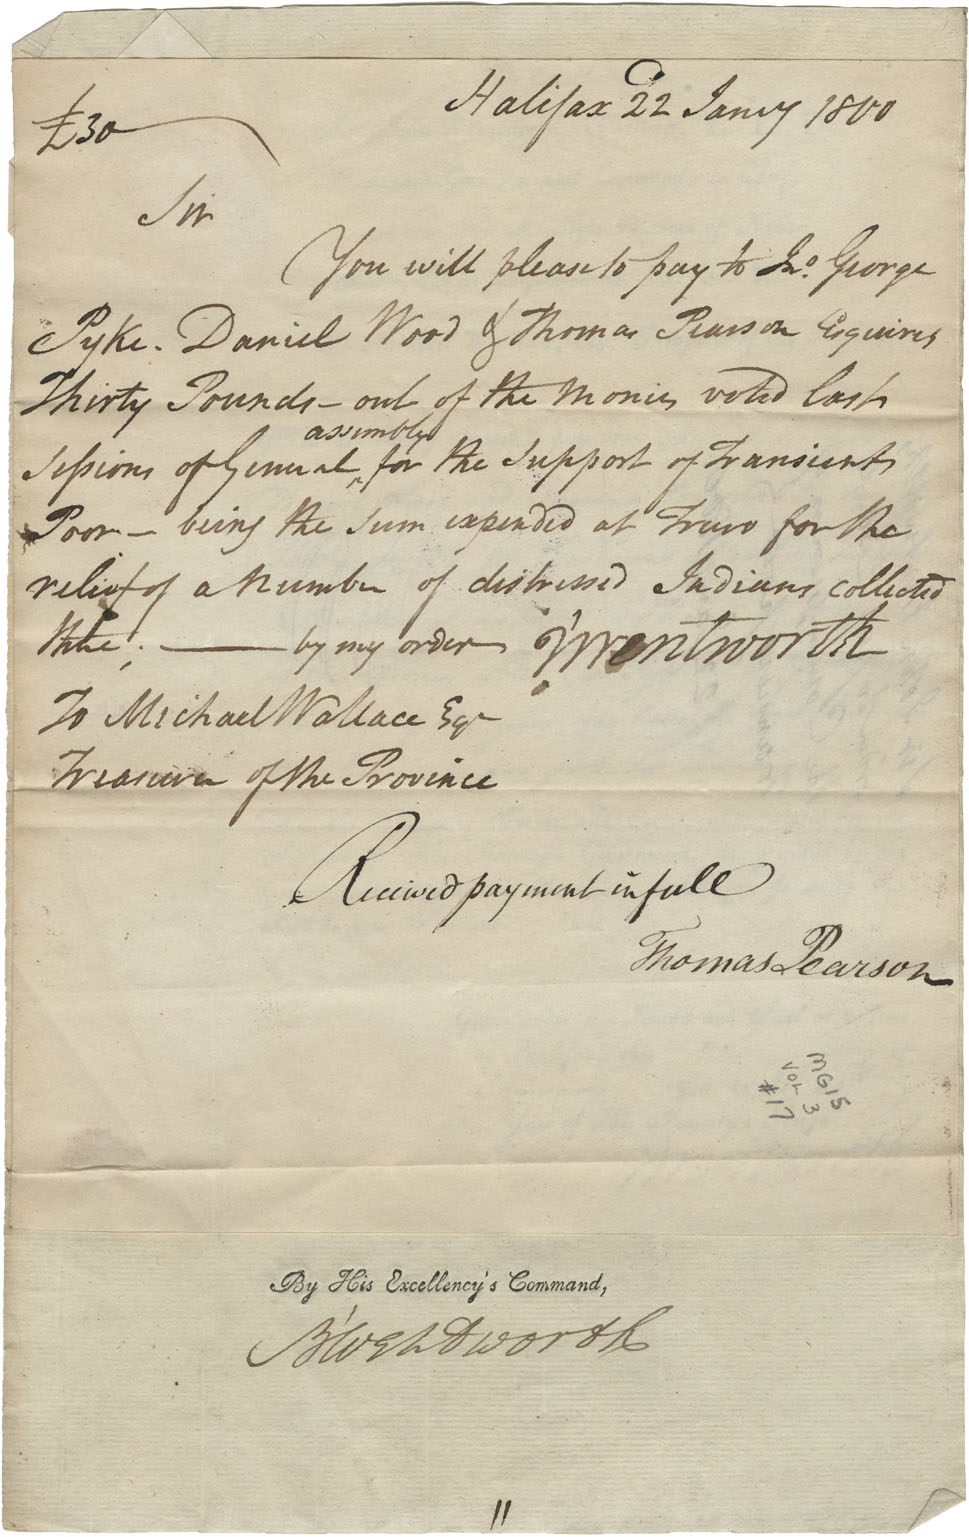 Halifax 22 Jany 1800
£30
Sir
You will please to pay to Jno. George
Pyke. Daniel Wood & Thomas Pearson Esquires
Thirty Pounds - out of the monies voted last
sessions of General assembly for the support of Transient
Poor - being the sum expended at Truro for the
relief of a number of distressed Indians collected
there; by my order J Wentworth
To Michael Wallace Esqr
Treasurer of the Province
Received payment in full
Thomas Pearson
MG15
VOL 3
#17
By His Excellency's Command,
B Wentworth
11